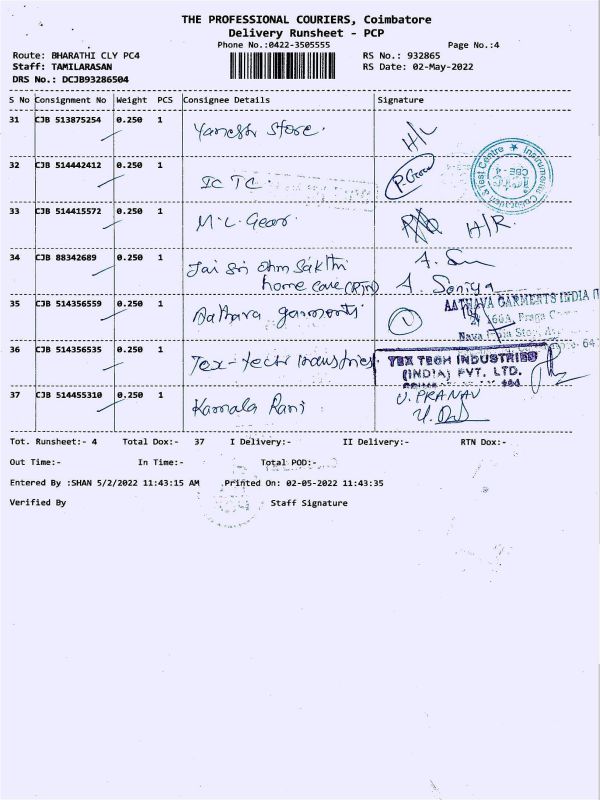 THE PROFESSIONAL COURIERS, Coimbatore
Delivery Runsheet - PCP
Phone No.:0422-3505555 Page No.:4
Route: BHARATHI CLY PC4 RS No.: 932865
Staff: TAMILARASAN RS Date: 02-May-2022
DRS No.: DCJB93286504
S No Consignment No Weight PCS Consignee Details Signature
31 CJB 513875254 0.250 1 Store. H/L
32 CJB 514442412 0.250 1 IC TC.
Instruments Calibration & Test Centre CBE - 4
33 CJB 514415572 0.250 1 M.L. Gear. H/R.
34 CJB 88342689 0.250 1 Jai Sri Ohm Sakthi
home care (RTN) A. Soniya
35 CJB 514356559 0.250 1 Aathava garments
AATHAVA GARMENTS INDIA
36 CJB 514356535 0.250 1 Tex-tech industries
TEX TECH INDUSTRIES
(INDIA) PVT. LTD.
37 CJB 514455310 0.250 1 Kamala Rani U. PRANAV
Tot. Runsheet:- 4 Total Dox:- 37 I Delivery:- II Delivery:- RTN Dox:-
Out Time:- In Time:- Total POD:-
Entered By :SHAN 5/2/2022 11:43:15 AM Printed On: 02-05-2022 11:43:35
Verified By Staff Signature